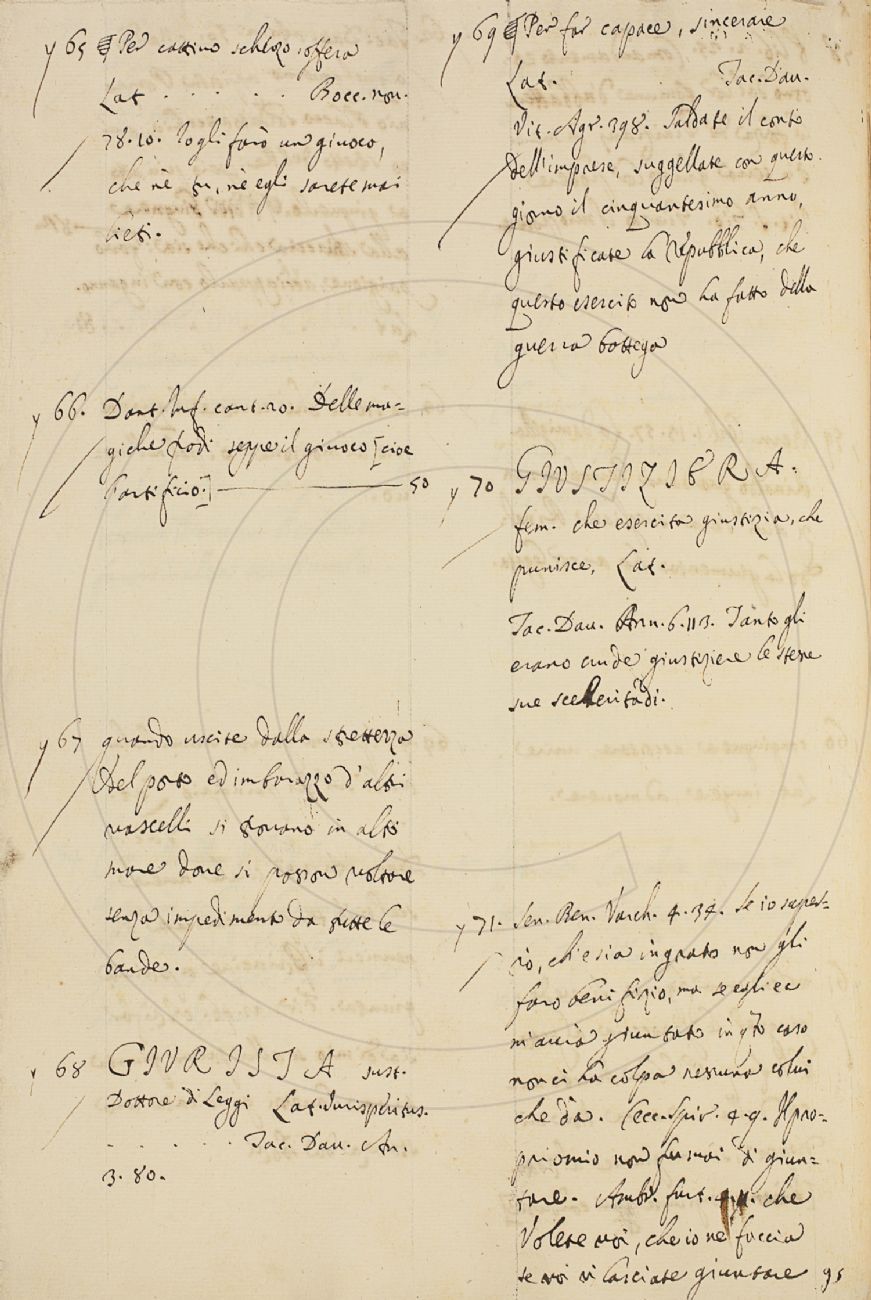 y 65 ¶ Per cattivo scherzo, offesa
Lat. . . . . . Bocc. nov.
78. 10. Io gli farò un giuoco,
che nè tu, nè egli sarete mai
lieti.
y 66. Dant. Inf. cant. 20. Delle ma=
giche frodi seppe il giuoco [cioè
l'artificio.] 50
y 67 quando uscite dalla strettezza
del porto ed imbarazzo d'altri
vascelli si trovano in alto
mare dove si posson voltare
senza impedimento da tutte le
bande.
y 68 GIURISTA sust.
Dottore di Leggi Lat. Jurisperitus.
. . . . . . Tac. Dav. An.
3. 80.
y 69 ¶ Per far capace, sincerare
Lat. Tac. Dav.
Vit. Agr. 398. Saldate il conto
dell'imprese, suggellate con questo
giorno il cinquantesimo anno,
giustificate la Repubblica, che
questo esercito non ha fatto della
guerra bottega
y 70 GIUSTIZIERA.
fem. che esercita giustizia, che
punisce, Lat.
Tac. Dav. Ann. 6. 113. Tanto gli
erano crude giustiziere le stesse
sue scelleritadi.
y 71. Sen. Ben. Varch. 4. 34. Se io saper=
rò, ch'e' sia ingrato non gli
farò benifizio, ma se egli ec
m'avrà giuntato in qto caso
non ci ha colpa nessuna colui
che dà. Cecc. Spir. 4. 9. Il pro=
prio mio non fu mai di giun=
tare. Ambr. Furt. che
Volete voi, che io ne faccia
se voi vi lasciate giuntare 95